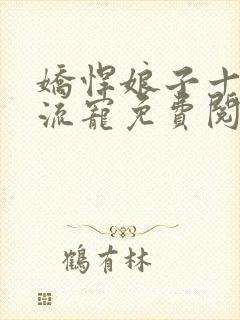 嬌悍娘子十
流寵免費閱
鶴有林